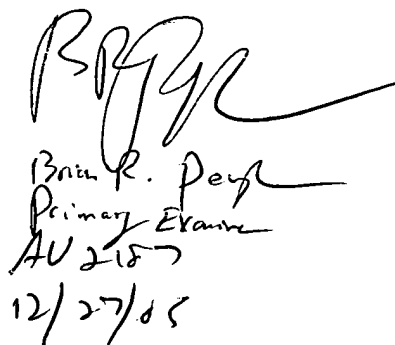 Brian R. Peugh
Primary Examiner
AU 2187
12/27/05